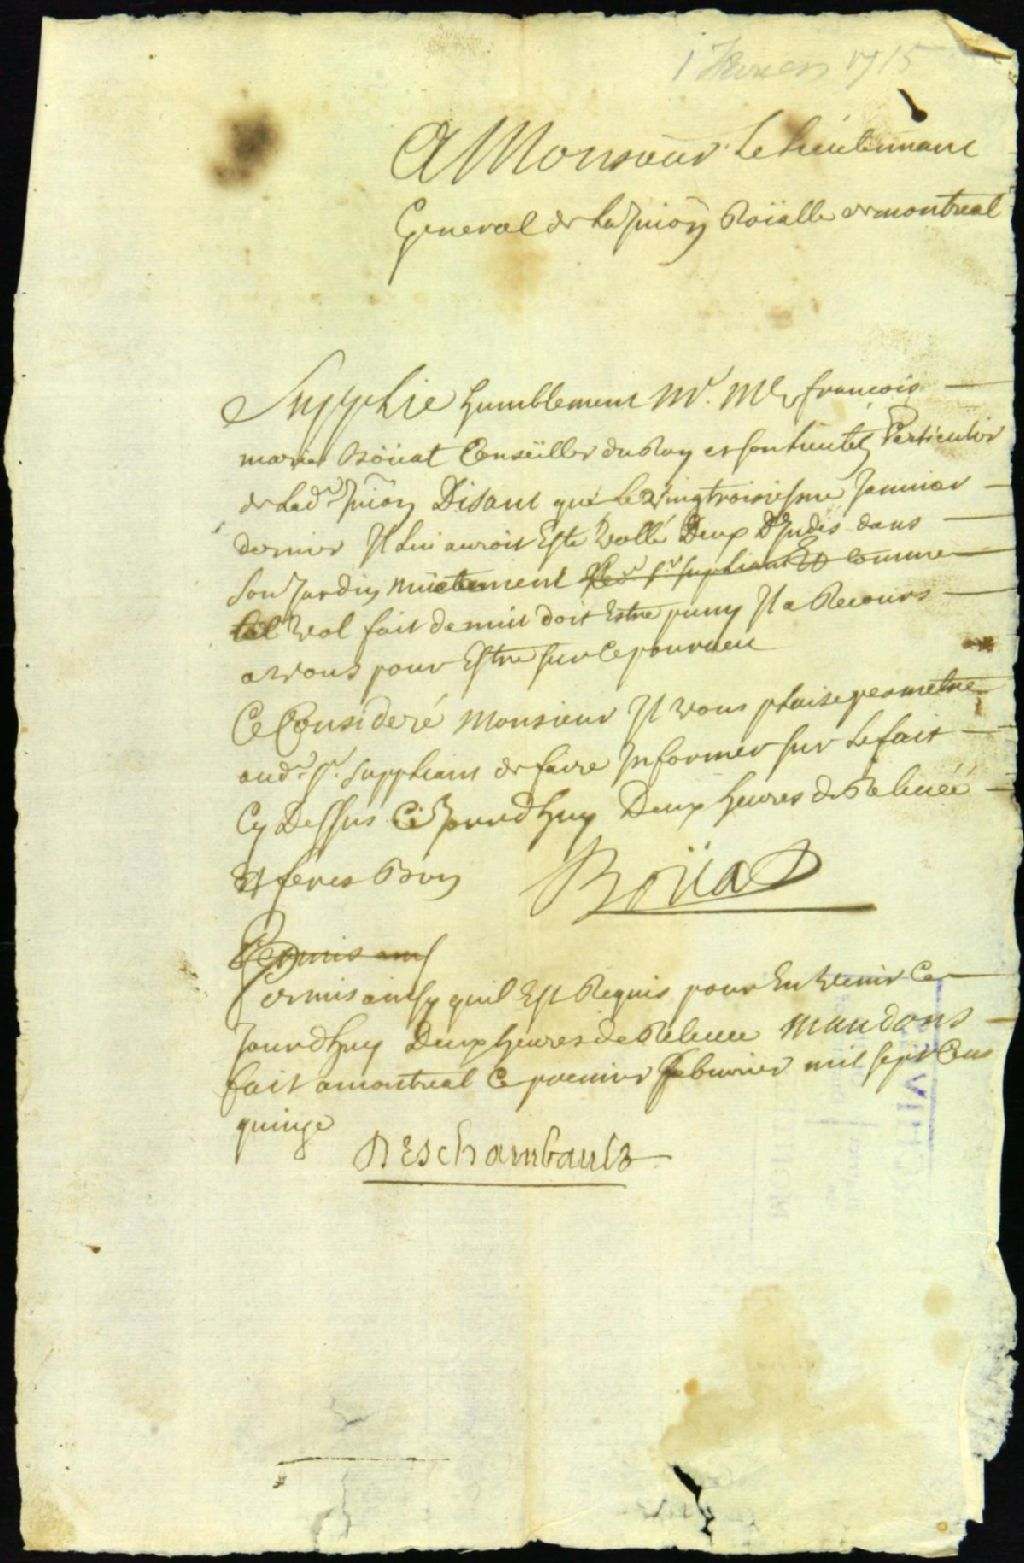 1 Fevrier 1715
A Monsieur Le Lieutennant
General de La Juion Roïalle de montreal
Supplie humblement Mr. Me françois
marie Boüat Conseiller du Roy et son Lieutet Particulier
de Lade Juion Disant que Le Vingtroisiesme Janvier
dernier Il lui auroit Esté Vollé Deux D'Indes dans
son Jardin nuictament Et comme
tel Vol fait de nuit doit Estre puny Il a Recours
a Vous pour Estre sur ce pourveu
Ce Consideré Monsieur Il vous plaise permetre
aud. Sr. Suppliant de faire Informer sur Le fait
Cy Dessus Ce Jourdhuy Deux heures de Relevée
Et ferez Bien
Boüat
Permis ains
Permis ainsy quil Est Requis pour En Venir Ce
Jourdhuy Deux heures de Relevee Mandons
fait a montreal Ce premier febvrier mil sept Cens
quinze
Deschambault